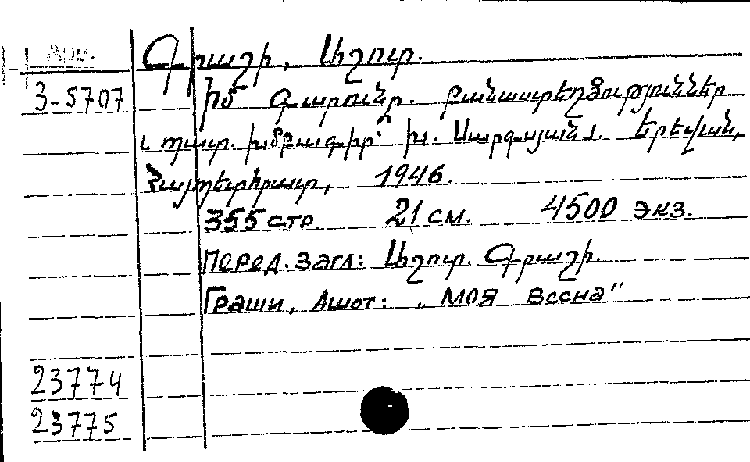 Арм.
Գրաշի, Աշոտ.
3-5707 Իմ գարունը. բանաստեղծություններ
պատ. խմբագիր՝ Խ. Սարգսյան. Երևան,
Հայպետհրատ, 1946.
355 стр 21 см. 4500 экз.
Перед. загл: Աշոտ Գրաշի
Граши, Ашот: „Моя весна"
23774
23775